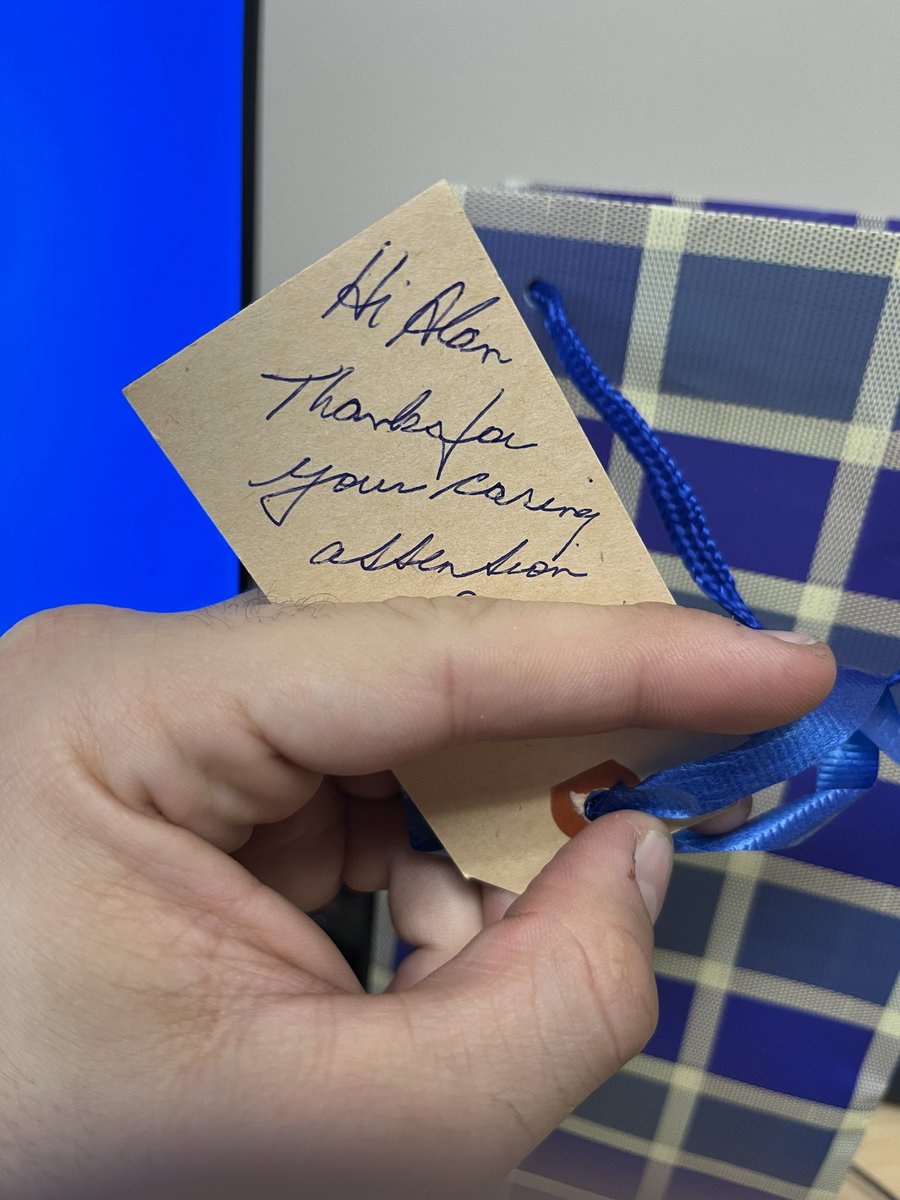 Hi Alan
Thanks for
your caring
attention